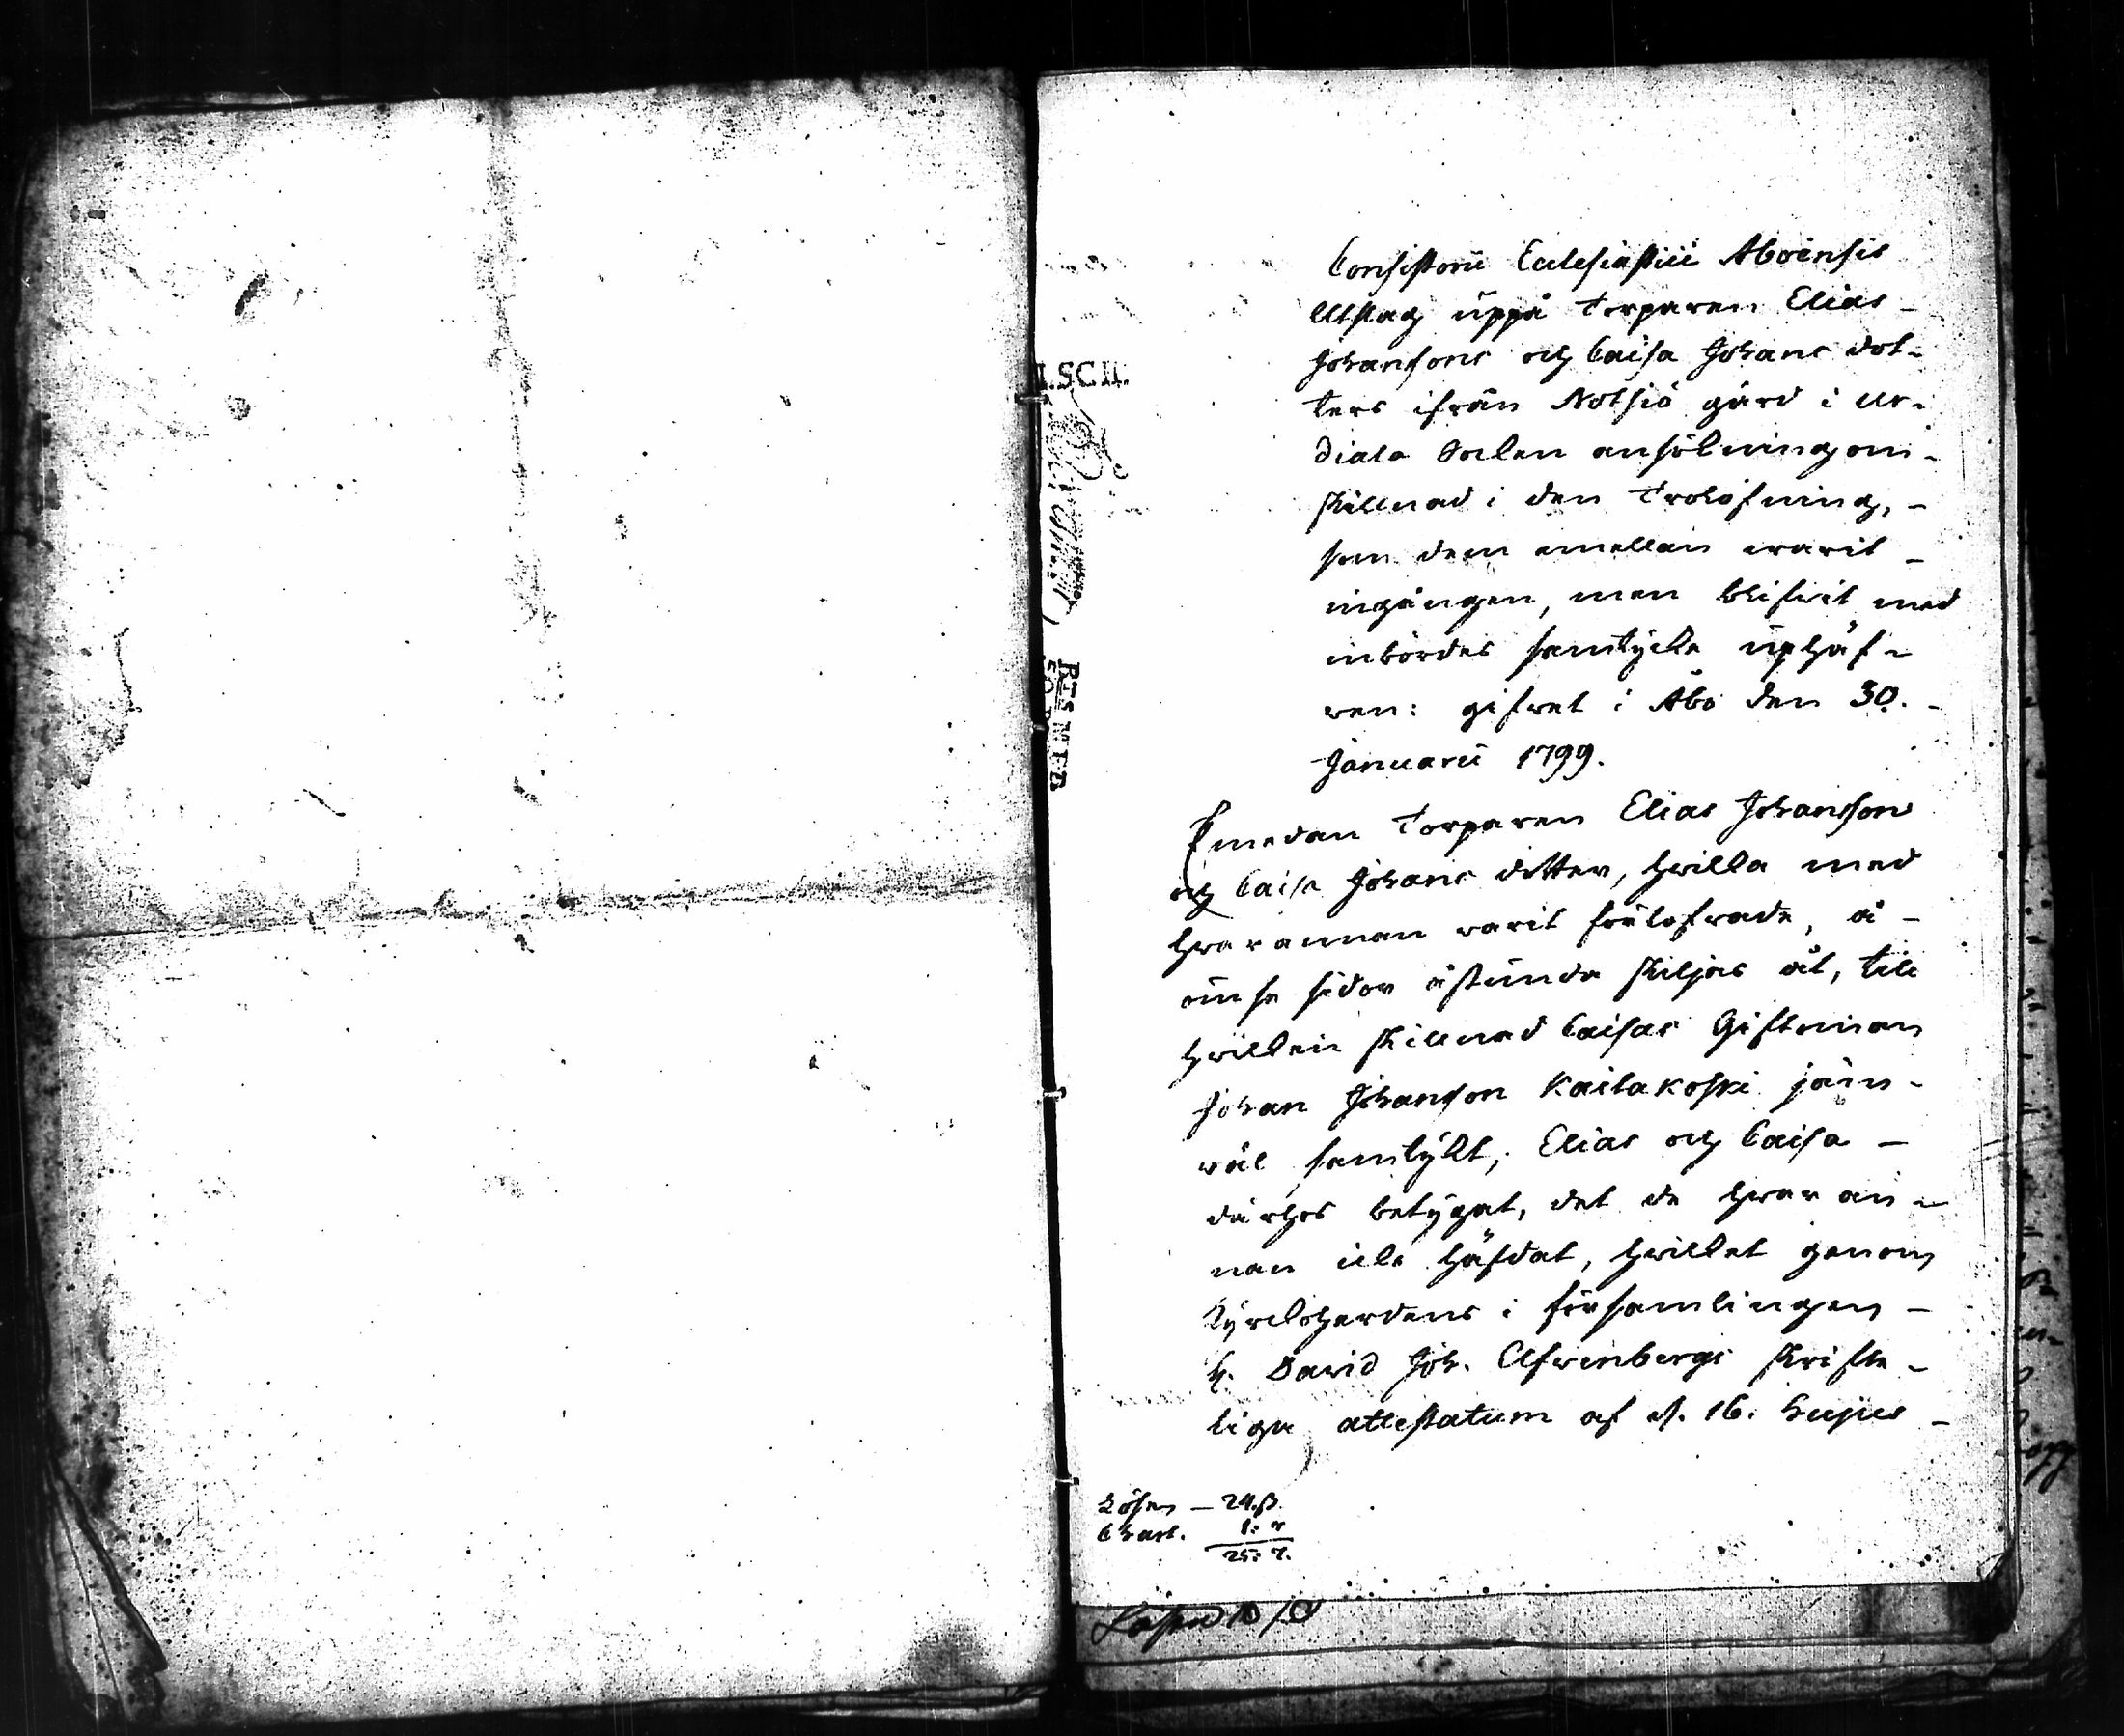 Consistorii Ecclesiastici Aboensis
Utslag uppå Torparen Elias
Johansons och Caisa Johans dot-
ters ifrån Notsjö gård i Ur-
diala Sokn ansökning om
skillnad i den Trolofning,
som dem emellan warit
ingången, men blifwit med
inbördes samtycke uphäf-
wen: gifwet i Åbo den 30.
Januarii 1799.
Emedan Torparen Elias Johansson
och Caisa Johans dotter, hwilka med
hwarannan warit förlofwade, å
ömse sidor åstunda skiljas åt, till
hwilken skillnad Caisas Giftoman
Johan Johanson Kailakoski jäm-
wäl samtykt, Elias och Caisa
därhos betygat, det de hwaran-
nan icke häfdat, hwilket genom
Kyrckoherdens i församlingen
H. David Joh. Elfwenbergs skrifte-
liga attestatum af d. 16. hujus
Lösen — 24.ß.
Chart.
I.SC.II.